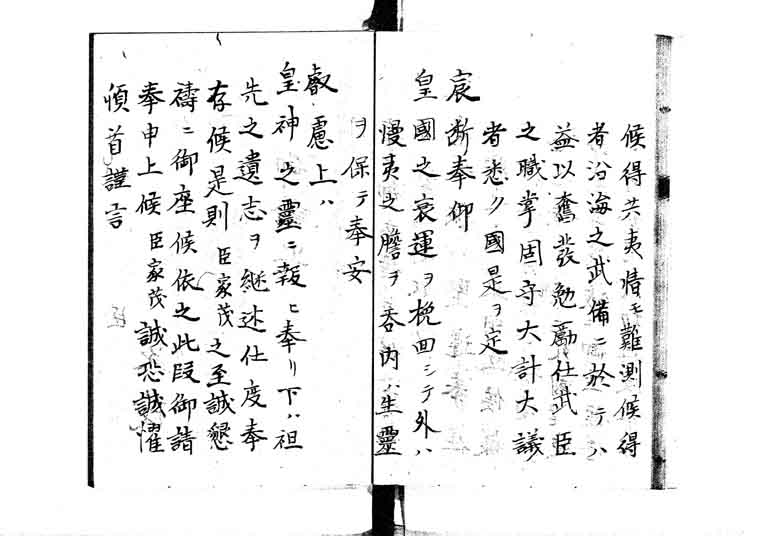 候得共夷情モ難測候得
者沿海之武備ニ於テハ
益以奮發勉勵仕武臣
之職掌固守大計大議
者悉ク國是ヲ定
宸断奉仰
皇國之衰運ヲ挽回シテ外ハ
慢夷之膽ヲ呑内ハ生靈
ヲ保テ奉安
叡慮上ハ
皇神之靈ニ報ヒ奉リ下ハ祖
先之遺志ヲ継述仕度奉
存候是則臣家茂之至誠懇
禱ニ御座候依之此段御請
奉申上候臣家茂誠恐誠懼
頓首謹言